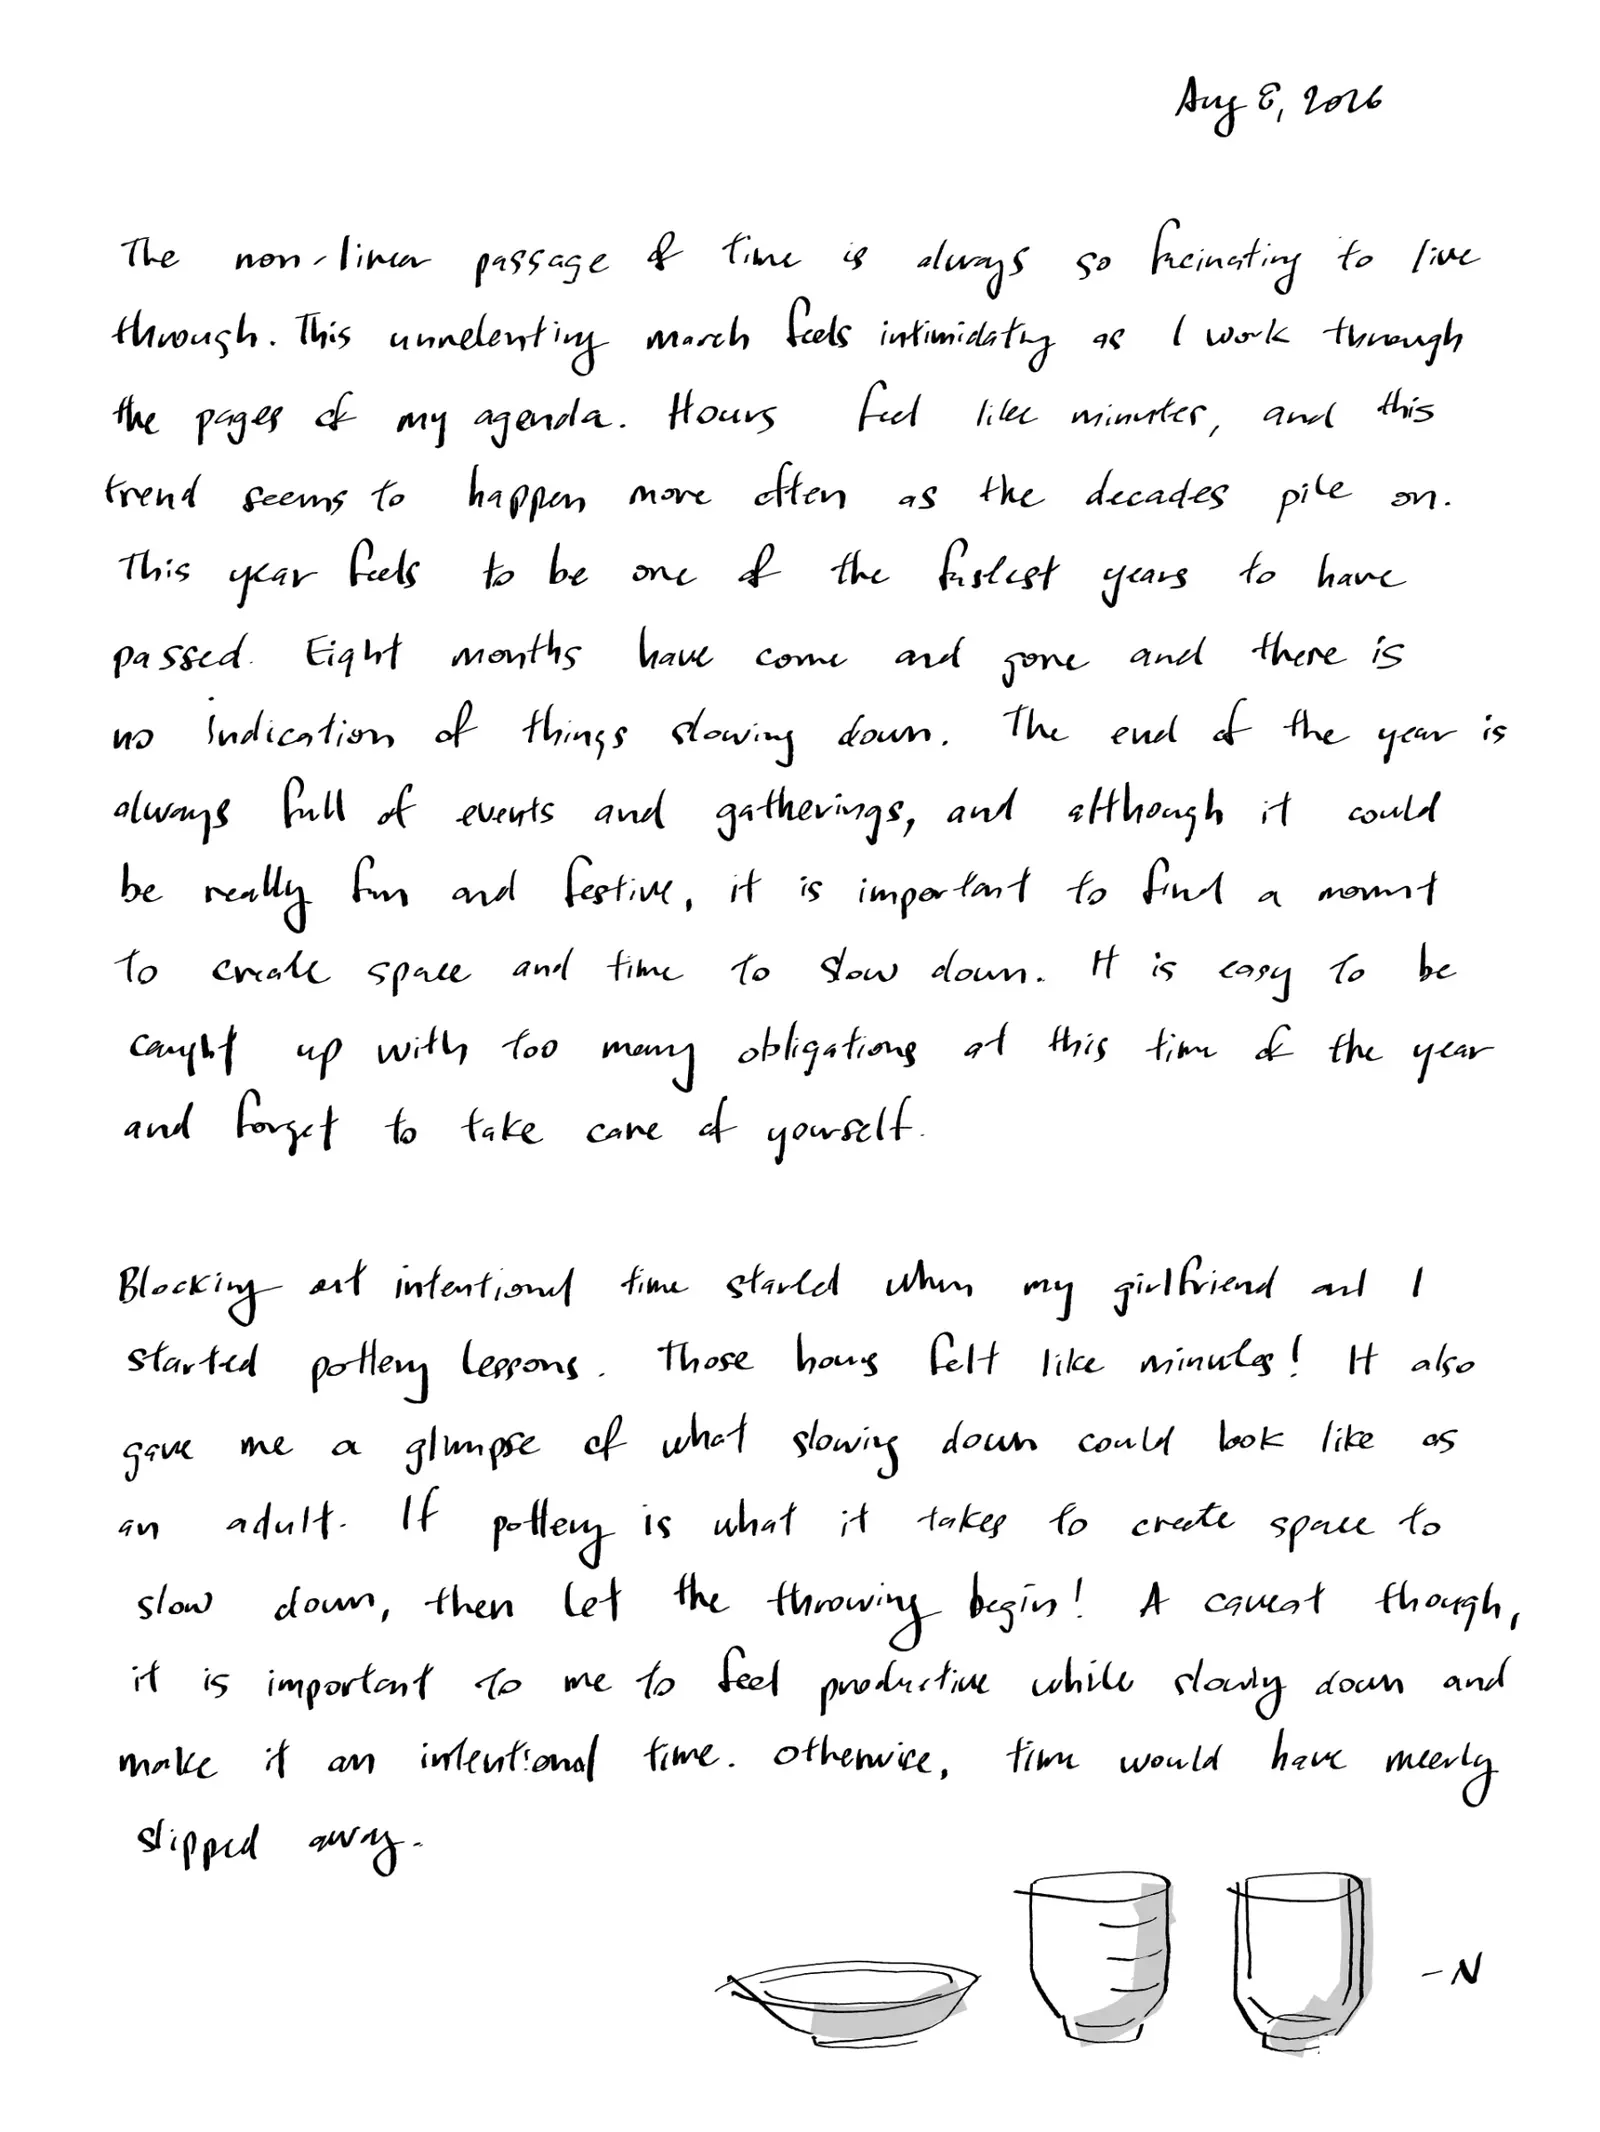 Aug 8, 2026
The non-linear passage of time is always so facinating to live
through. This unrelenting march feels intimidating as I work through
the pages of my agenda. Hours feel like minutes, and this
trend seems to happen more often as the decades pile on.
This year feels to be one of the fastest years to have
passed. Eight months have come and gone and there is
no indication of things slowing down. The end of the year is
always full of events and gatherings, and although it could
be really fun and festive, it is important to find a moment
to create space and time to slow down. It is easy to be
caught up with too many obligations at this time of the year
and forget to take care of yourself.
Blocking out intentional time started when my girlfriend and I
started pottery lessons. Those hours felt like minutes! It also
gave me a glimpse of what slowing down could look like as
an adult. If pottery is what it takes to create space to
slow down, then let the throwing begin! A caveat though,
it is important to me to feel productive while slowly down and
make it an intentional time. Otherwise, time would have meerly
slipped away.
-N